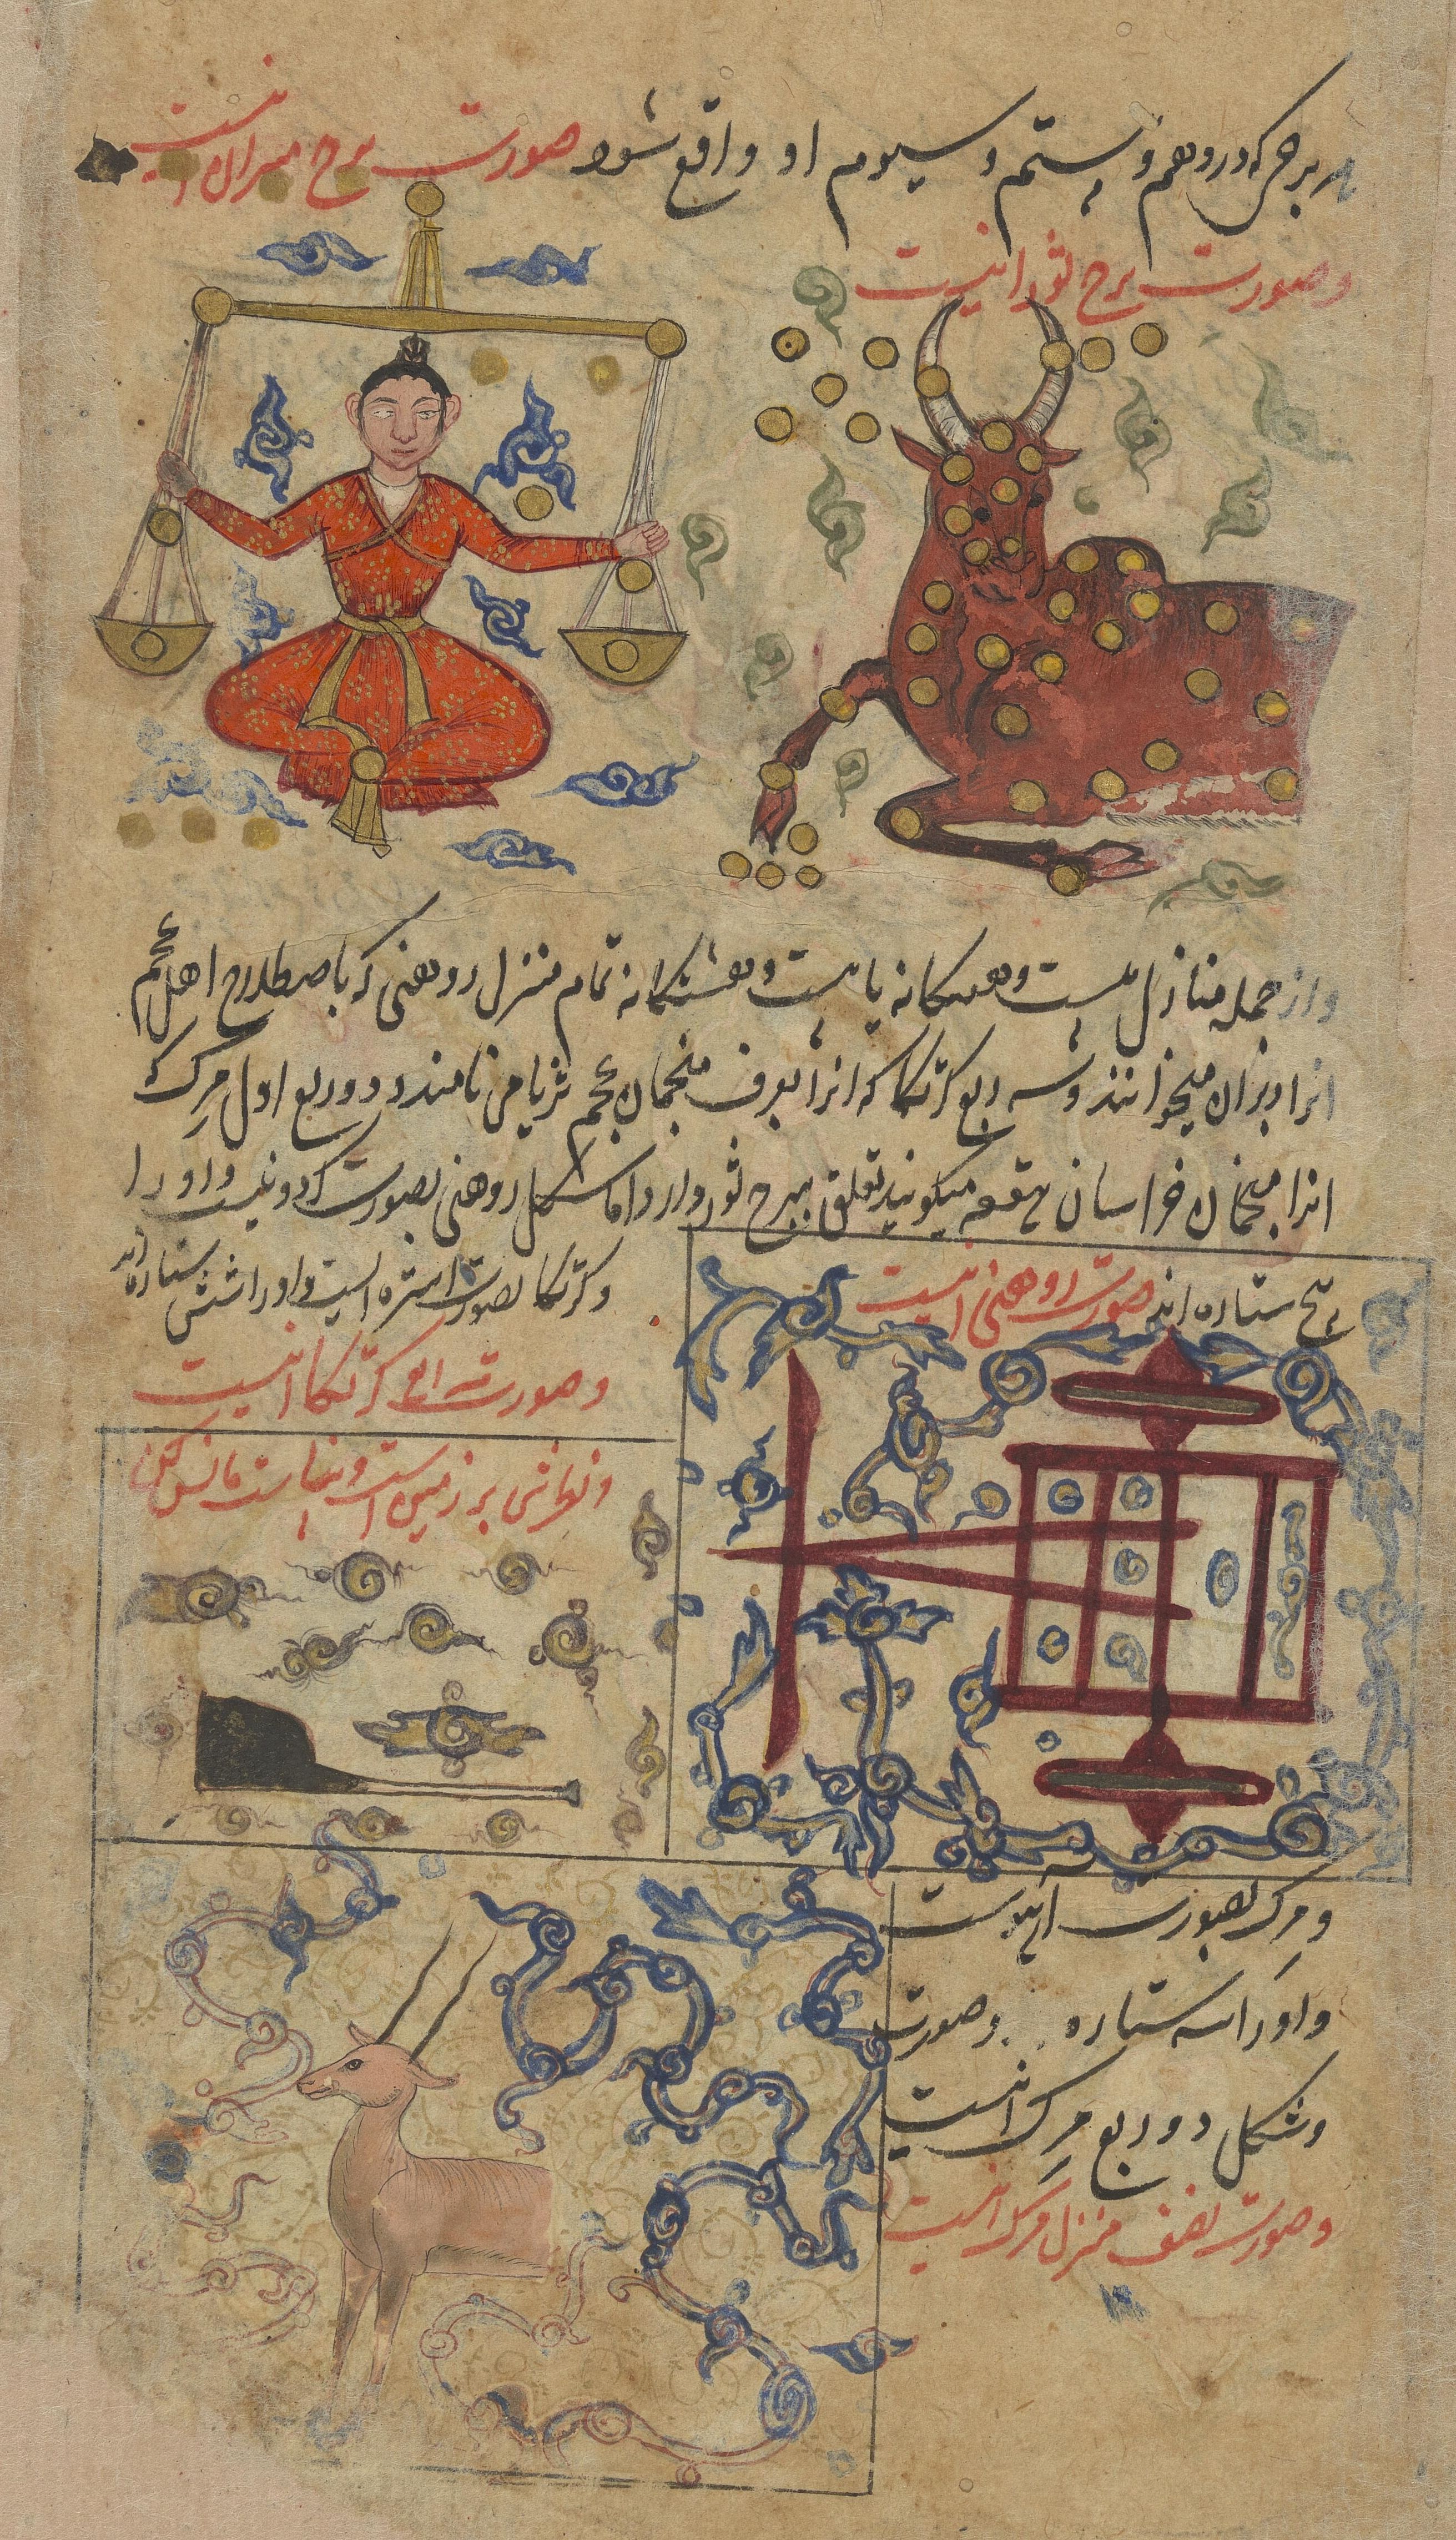 هر برجی که در دوهم و بیستم و سیوم او واقع شود صورت برج میزان اینست
و صورت برج ثور اینست
و از جمله منازل بیست و هفتگانه یا بیست و هشتگانه تمام منزل روهنی که باصطلاح اهل عجم
انرا دبران میخوانند و سه ربع کرتکا که انرا بعرف منجمان عجم ثریا می نامند و دو ربع اول مرک که
انرا منجمان خراسان هقعه میکویند تعلق ببرج ثور دارد اما شکل روهنی بصورت کردونیست و او را
پنج ستاره اند صورت روهنی اینست
و کرتکا بصورت استره ایست و او را شش ستاره اند
و صورت کرتکا اینست
و مرک بصورت آهوست
و او را سه ستاره و صورت
و شکل دو ربع مرک اینست
و صورت نصف منزل مرک اینست